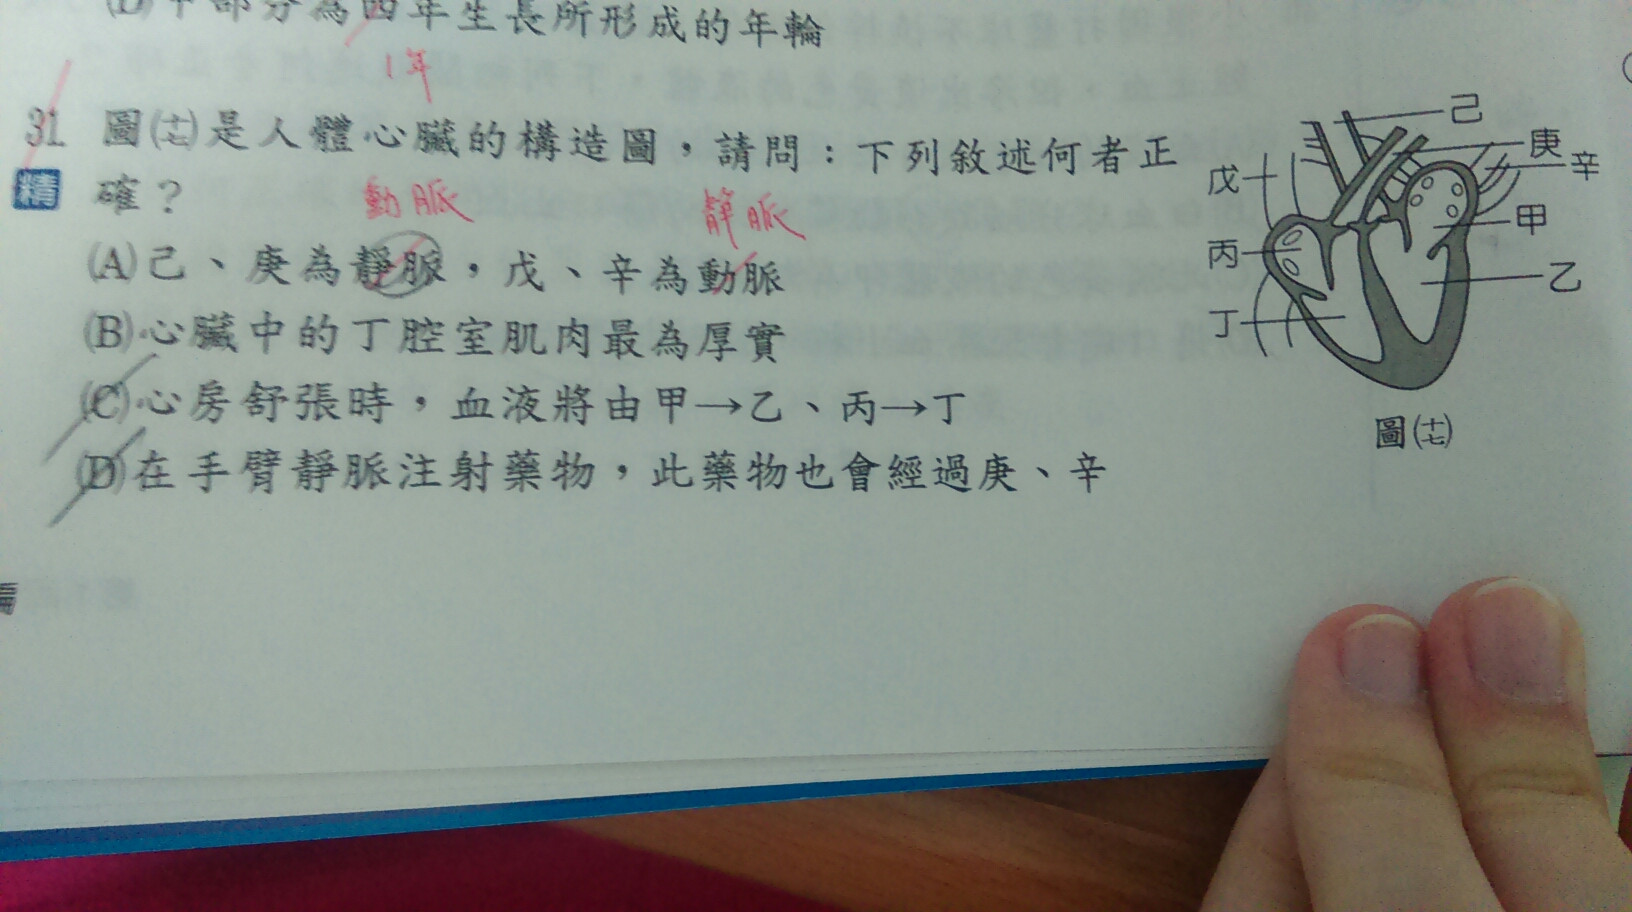 (D)甲部分為四年生長所形成的年輪
1年
31 圖(十七)是人體心臟的構造圖，請問：下列敘述何者正
精 確？
動脈 靜脈
(A)己、庚為靜脈，戊、辛為動脈
(B)心臟中的丁腔室肌肉最為厚實
(C)心房舒張時，血液將由甲→乙、丙→丁
(D)在手臂靜脈注射藥物，此藥物也會經過庚、辛
己
庚
辛
戊
甲
丙
乙
丁
圖(十七)